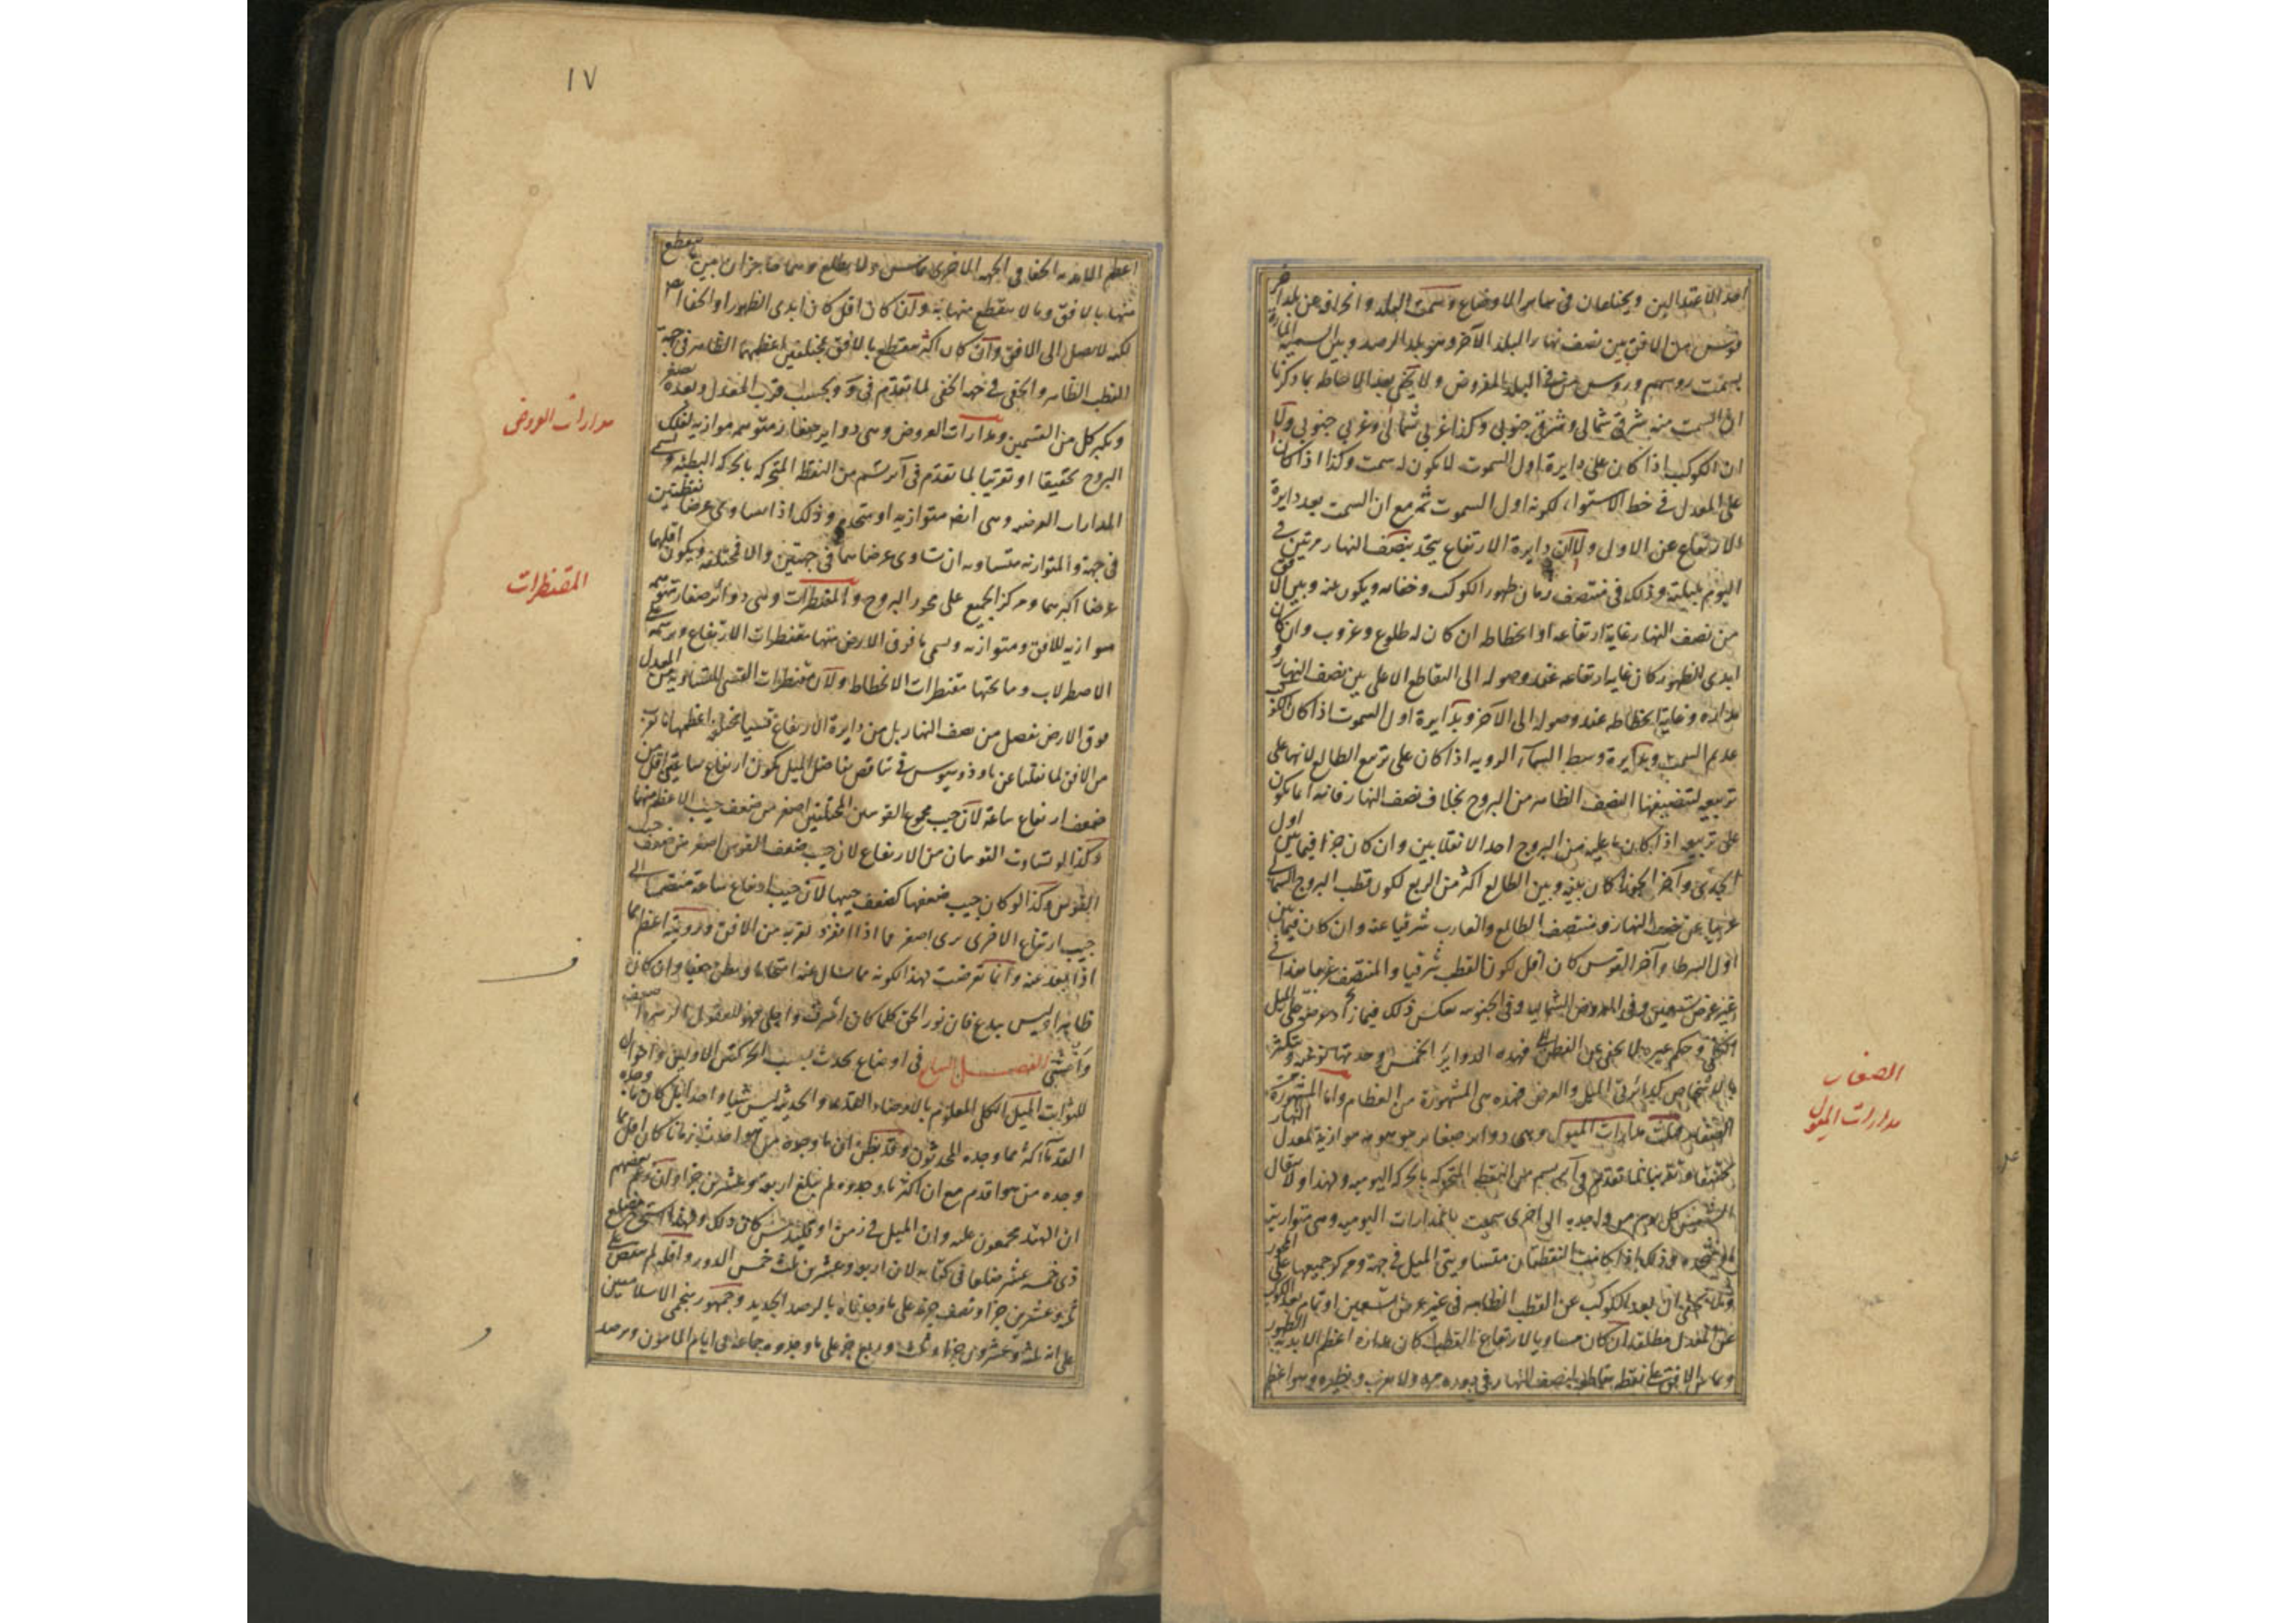 احد الاعتدالين ويختلفان في سائر الاوضاع وسمت البلد وانحرافه عن بلد آخر
قوس من الافق بين نصف نهار البلد الآخر وهو بلد الرصد وبين السمتية المارة
بسمت روسهم وروس من في البلد المفروض ولا يخفى بعد الاحاطة بما ذكرنا
ان السمت منه شرقي شمالي وشرقي جنوبي وكذا غربي شمالي وغربي جنوبي و
ان الكوكب اذا كان على دايرة اول السموت لا يكون له سمت وكذا اذا كان
على المعدل في خط الاستواء لكونه اول السموت ثمه مع ان السمت بعد دايرة
الارتفاع عن الاولى ولان دايرة الارتفاع يتحد بنصف النهار مرتين في
اليوم بليلته وذلك في منتصف زمان ظهور الكوكب وخفائه ويكون بينه وبين الافق
من نصف النهار غاية ارتفاعه او انحطاطه ان كان له طلوع وغروب وان كان
ابدي الظهور كان غاية ارتفاعه عند وصوله الى التقاطع الاعلى بين نصف النهار و
مداره وغاية انحطاطه عند وصوله الى الآخر وبدايرة اول السموت اذا كان الكوكب
عديم السمت وبدايرة وسط السماء الروية اذا كان على تربيع الطالع لانها على
تربيعه لتنصيفها النصف الظاهر من البروج بخلاف نصف النهار فانه انما يكون
على تربيعه اذا كان ما عليه من البروج احد الانقلابين وان كان جزءا فيما بين اول
الجدي وآخر الجوزا كان بينه وبين الطالع اكثر من الربع لكون قطب البروج الشمالي
غربيا عن نصف النهار ومنتصف الطالع والغارب شرقيا عنه وان كان فيما بين
اول السرطان وآخر القوس كان اقل لكون القطب شرقيا والمنتصف غربيا هذا في
غير عرض تسعين وفي العروض الشمالية وفي الجنوبية بعكس ذلك فيما زاد عرضه على الميل
الكلي وحكم غيره لا يخفى على الفطن فهذه الدواير الخمس وحدتها نوعية و تتكثر
بالاشخاص كدايرتي الميل والعرض فهذه هي المشهورة من العظام واما المشهورة من
الصغار فمدارات الميول وهي دواير صغار موهومة موازية لمعدل النهار
تحقيقا وتقريبا لما تقدم في آ يرتسم من النقط المتحركة بالحركة اليومية ولهذا ولانتقال
الشمس كل يوم من واحدة الى اخرى سميت بالمدارات اليومية وهي متوازية
او متحدة وذلك اذا كانت النقطتان متساويتي الميل في جهة ومركز جميعها على المحور
ولا يخفى ان بعد الكوكب عن القطب الظاهر في غير عرض تسعين او تمام بعد الكوكب
عن المعدل مطلقا ان كان مساويا لارتفاع القطب كان مداره اعظم الابدية الظهور
ويماس الافق على نقطة تقاطعه لنصف النهار في دورة مرة ولا يغرب ونظيره وهو اعظم
الصغار
مدارات الميول
١٧
اعظم الابدية الخفا في الجهة الاخرى يماسه ولا يطلع وهما حاجزان بين ما ينقطع
منها بالافق وما لا ينقطع منها به وان كان اقل كان ابدي الظهور او الخفا
لكنه لا يصل الى الافق وان كان اكثر ينقطع بالافق بمختلفين اعظمهما الظاهر في جهة
القطب الظاهر والخفي في جهة الخفي لما تقدم في و وبحسب قرب المعدل وبعده يصغر
ويكبر كل من القسمين ومدارات العروض وهي دواير صغار متوهمة موازية لفلك
البروج تحقيقا او تقريبا لما تقدم في آ يرتسم من النقط المتحركة بالحركة البطيئة ويسمى
المدارات العرضية وهي ايضا متوازية او متحدة وذلك اذا تساوى عرضا نقطتين
في جهة والمتوازية متساوية ان تساوى عرضاهما في جهتين والا فمختلفة ويكون اقلهما
عرضا اكبرهما ومركز الجميع على محور البروج والمقنطرات وهي دوائر صغار متوهمة
موازية للافق ومتوازية ويسمى ما فوق الارض منها مقنطرات الارتفاع ويرسم على
الاصطرلاب وما تحتها مقنطرات الانحطاط ولان مقنطرات القسي المتساوية من المعدل
فوق الارض تفصل من نصف النهار بل من دايرة الارتفاع قسيا مختلفة اعظمها ما قرب
من الافق لما نقلنا عن ثاوذوسيوس في تناقص تفاضل الميل يكون ارتفاع ساعتين اقل من
ضعف ارتفاع ساعة لان جيب مجموع القوسين المختلفتين اصغر من ضعف جيب الاعظم منهما
وكذا لو تساوت القوسان من الارتفاع لان جيب ضعف القوس اصغر من ضعف جيب
القوس وكذا لو كان جيب ضعفها كضعف جيبها لان جيب ارتفاع ساعة منضما الى
جيب ارتفاع الاخرى يرى اصغر مما اذا انفرد لقربه من الافق ورويته اعظم مما
اذا بعد عنه وانما تعرضت لهذا لكونه مما يسأل عنه امتحانا ويظن خفيا وان كان
ظاهرا وليس ببدع فان نور الحق كلما كان اشرق واجلى فهو للعقول الزمنة اضعف
واخفى الفصل السابع في اوضاع يحدث بسبب الحركتين الاوليين واحوال
للثوابت الميل الكلي المعلوم بالارصاد القديمة والحديثة ليس شيا واحدا بل كان ما وجده
القدماء اكثر مما وجده المحدثون وقد يظن ان ما وجده من هو احدث زمانا كان اقل مما
وجده من هو اقدم مع ان اكثر ما وجدوه لم يبلغ اربعة وعشرين جزءا وان زعم بعضهم
ان الهند مجمعون عليه وان الميل في زمن اوقليدس كان ذلك ولهذا استخرج ضلع
ذي خمسة عشر ضلعا في كتابه لان اربعة وعشرين ثلث خمس الدور واقله لم ينقص على
ثلثة وعشرين جزءا ونصف جزء على ما وجدناه بالرصد الجديد وجمهور منجمي الاسلاميين
على انه ثلثة وعشرون جزءا وثلث وربع جزء على ما وجدوه جماعة في ايام المامون وبرصد
مدارات العروض
المقنطرات